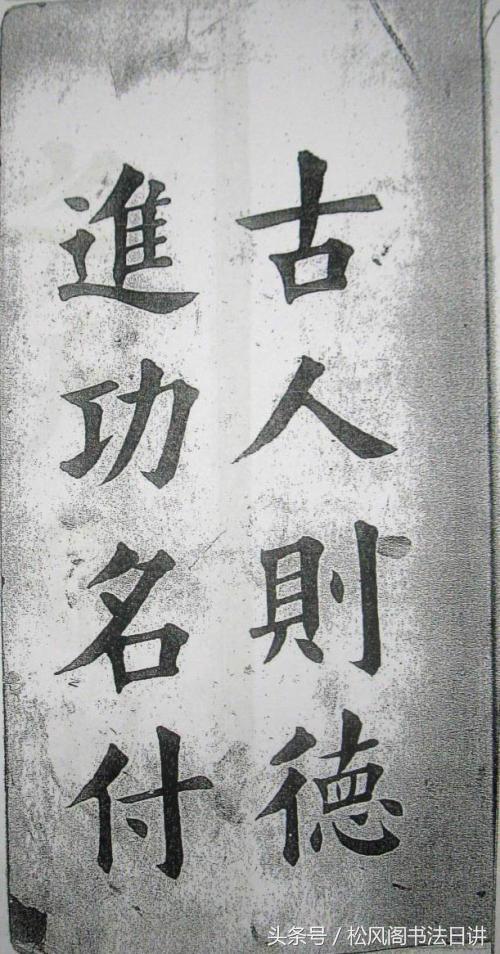 古人則德
進功名付
头条号/松风阁书法日讲